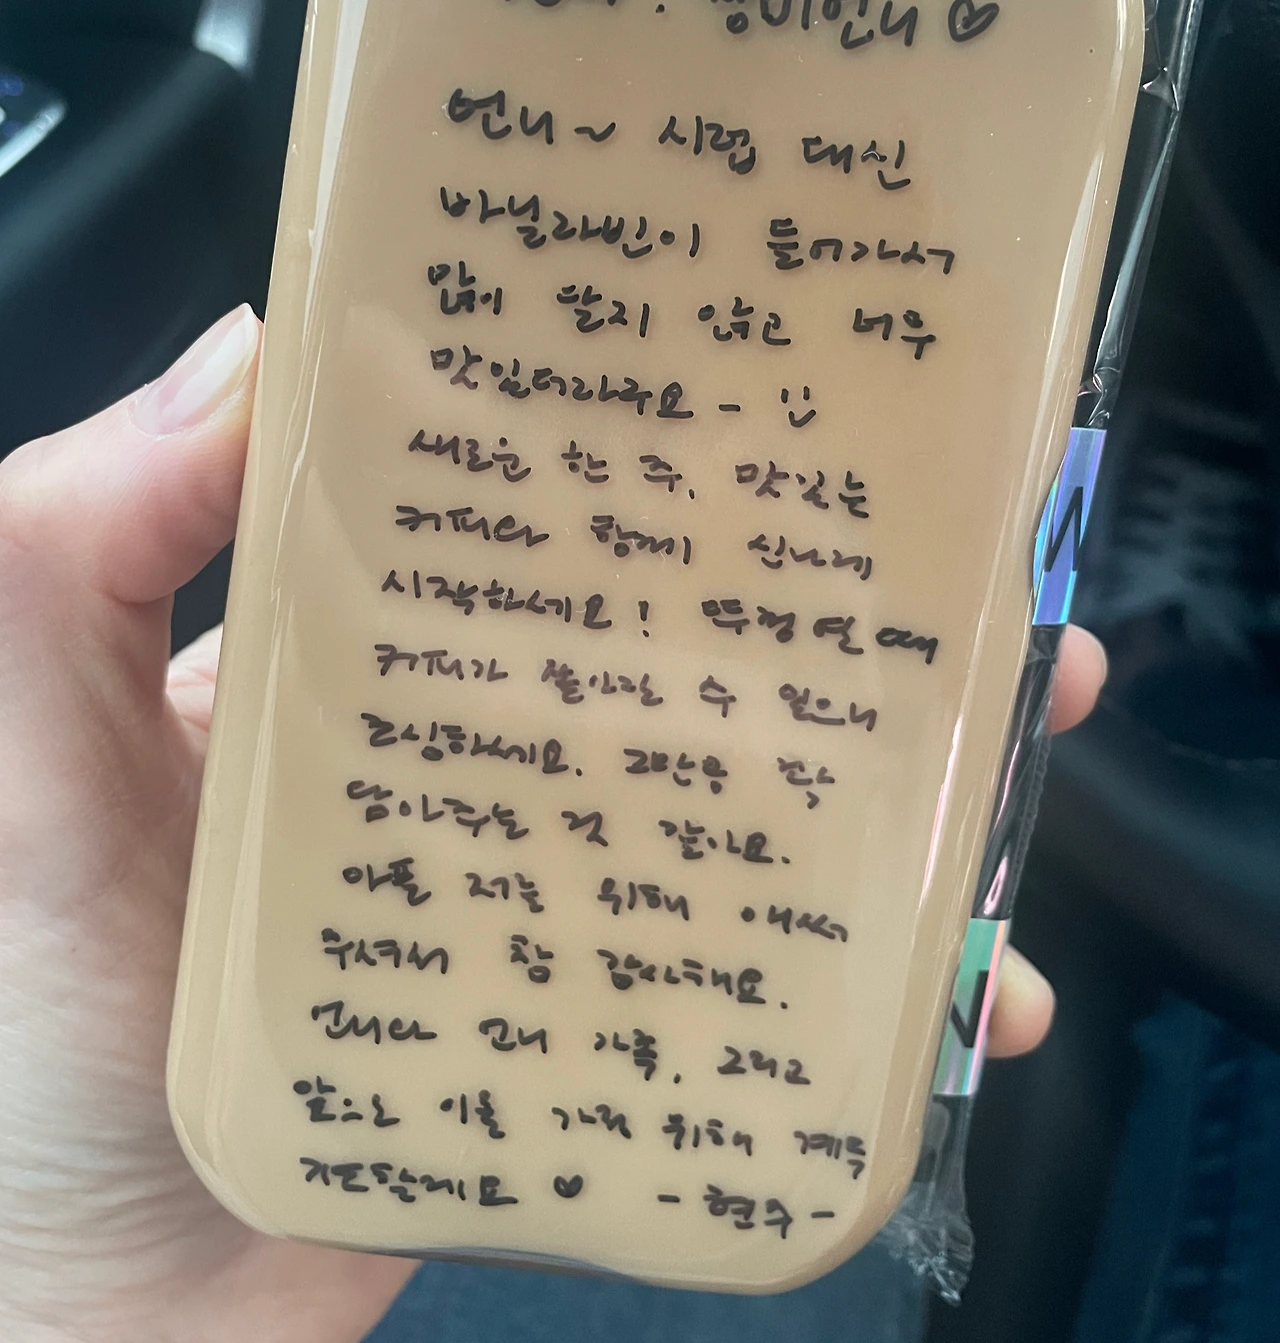 언니 ♡
언니~ 시럽 대신
바닐라빈이 들어가서
많이 달지 않고 너무
맛있더라구요 - :)
새로운 한 주, 맛있는
커피와 함께 신나게
시작하세요! 뚜껑 열 때
커피가 쏟아질 수 있으니
조심하세요. 그만큼 꽉
담아주는 것 같아요.
아플 저를 위해 애써
주셔서 참 감사해요.
언니와 언니 가족, 그리고
앞으로 이룰 가정 위해 계속
기도할게요 ♥ - 현수 -
N